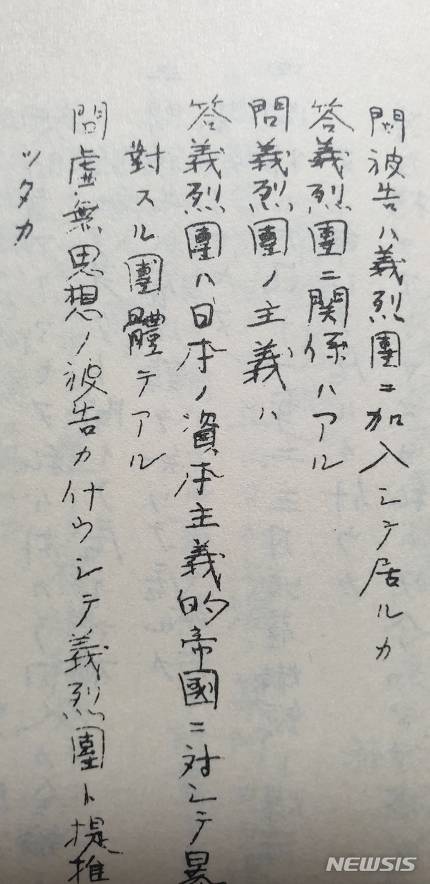 問被告ハ義烈團ニ加入シテ居ルカ
答義烈團ニ関係ハアル
問義烈團ノ主義ハ
答義烈團ハ日本ノ資本主義的帝國ニ対シテ暴
對スル團體テアル
問虚無思想ノ被告カ什ウシテ義烈團ト提携
ツタカ
NEWSIS